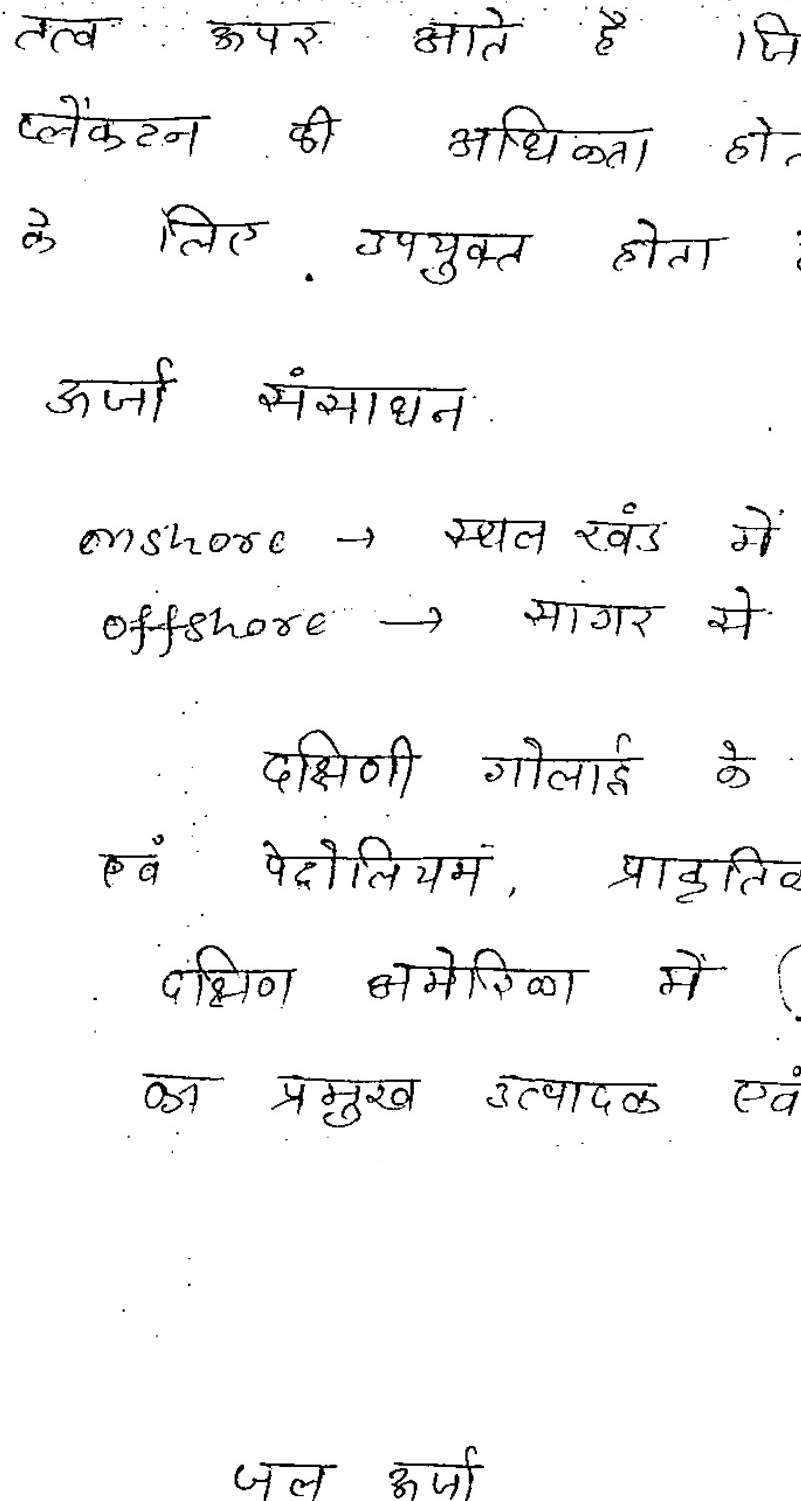 तत्व ऊपर आते है । जि
प्लेंकटन की अधिकता होत
के लिए उपयुक्त होता
ऊर्जा संसाधन
onshore → स्थल खंड में
offshore → सागर में
दक्षिणी गोलार्द्ध के
एवं पेट्रोलियम, प्राकृतिक
दक्षिण अमेरिका में (
का प्रमुख उत्पादक एवं
जल ऊर्जा